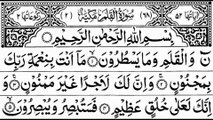 سورة القلم مكية
بِسْمِ اللَّهِ الرَّحْمَٰنِ الرَّحِيمِ
نٓ وَالْقَلَمِ وَمَا يَسْطُرُونَ ۝ مَا أَنتَ بِنِعْمَةِ رَبِّكَ
بِمَجْنُونٍ ۝ وَإِنَّ لَكَ لَأَجْرًا غَيْرَ مَمْنُونٍ ۝ وَ
إِنَّكَ لَعَلَىٰ خُلُقٍ عَظِيمٍ ۝ فَسَتُبْصِرُ وَيُبْصِرُونَ ۝